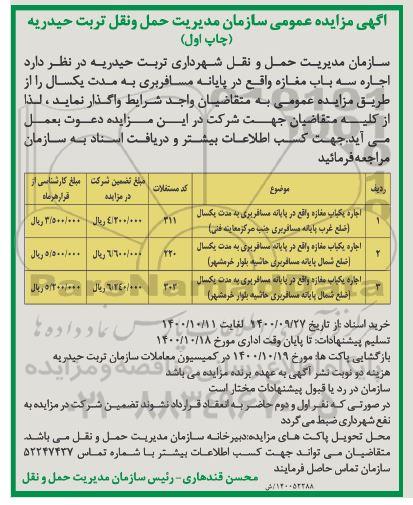 آگهی مزایده عمومی سازمان مدیریت حمل ونقل تربت حیدریه
(چاپ اول)
سازمان مدیریت حمل و نقل شهرداری تربت حیدریه در نظر دارد
اجاره سه باب مغازه واقع در پایانه مسافربری به مدت یکسال را از
طریق مزایده عمومی به متقاضیان واجد شرایط واگذار نماید، لذا
از کلیه متقاضیان جهت شرکت در این مزایده دعوت بعمل
می آید.جهت کسب اطلاعات بیشتر و دریافت اسناد به سازمان
مراجعه فرمائید
ردیف موضوع کد مستغلات مبلغ تضمین شرکت در مزایده مبلغ کارشناسی از قرار هرماه
۱ اجاره یکباب مغازه واقع در پایانه مسافربری به مدت یکسال (ضلع غرب پایانه مسافربری جنب مرکز معاینه فنی) ۳۱۱ ۴/۲۰۰/۰۰۰ ریال ۳/۵۰۰/۰۰۰ ریال
۲ اجاره یکباب مغازه واقع در پایانه مسافربری به مدت یکسال (ضلع شمال پایانه مسافربری حاشیه بلوار خرمشهر) ۲۲۰ ۶/۶۰۰/۰۰۰ ریال ۵/۵۰۰/۰۰۰ ریال
۳ اجاره یکباب مغازه واقع در پایانه مسافربری به مدت یکسال (ضلع شمال پایانه مسافربری حاشیه بلوار خرمشهر) ۳۰۲ ۶/۲۴۰/۰۰۰ ریال ۵/۲۰۰/۰۰۰ ریال
خرید اسناد: از تاریخ ۱۴۰۰/۰۹/۲۷ لغایت ۱۴۰۰/۱۰/۱۱
تسلیم پیشنهادات: تا پایان وقت اداری مورخ ۱۴۰۰/۱۰/۱۸
بازگشایی پاکت ها: مورخ ۱۴۰۰/۱۰/۱۹ در کمیسیون معاملات سازمان تربت حیدریه
هزینه دو نوبت نشر آگهی به عهده برنده مزایده می باشد
سازمان در رد یا قبول پیشنهادات مختار است
در صورتی که نفر اول و دوم حاضر به انعقاد قرارداد نشوند تضمین شرکت در مزایده به
نفع شهرداری ضبط می گردد
محل تحویل پاکت های مزایده:دبیرخانه سازمان مدیریت حمل و نقل می باشد.
متقاضیان می تواند جهت کسب اطلاعات بیشتر با شماره تماس ۵۲۲۴۷۴۳۷
سازمان تماس حاصل فرمایند
محسن قندهاری - رئیس سازمان مدیریت حمل و نقل
۱۴۰۰۵۲۲۸۸/ش